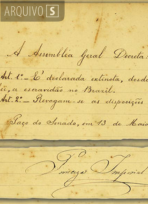 ARQUIVO S
A Assemblea Geral Decreta
Art. 1º - É declarada extincta, desde
a escravidão no Brazil.
Art. 2º - Revogam-se as disposições
Paço do Senado, em 13 de Maio